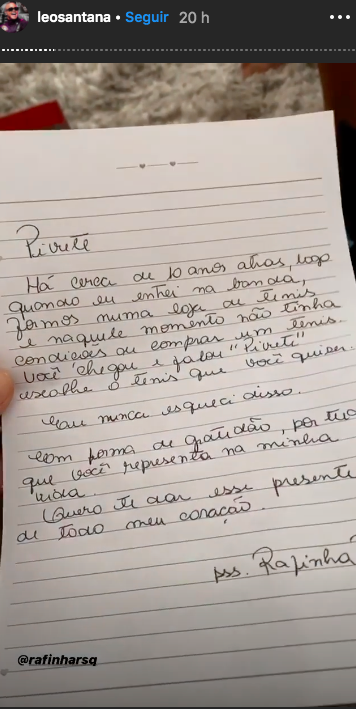 leosantana • Seguir 20 h
Pivete
Há cerca de 10 anos atras, logo
quando eu entrei na banda,
formos numa loja de tenis
e naquele momento não tinha
condicoes de comprar um tenis.
Você chegou e falou "Pivete"
escolhe o tenis que você quiser.
Eu nunca esqueci disso.
Com forma de gratidão, por tudo
que você representa na minha
vida.
Quero te dar esse presente
de todo meu coração.
pss. Rafinha
@rafinharsq